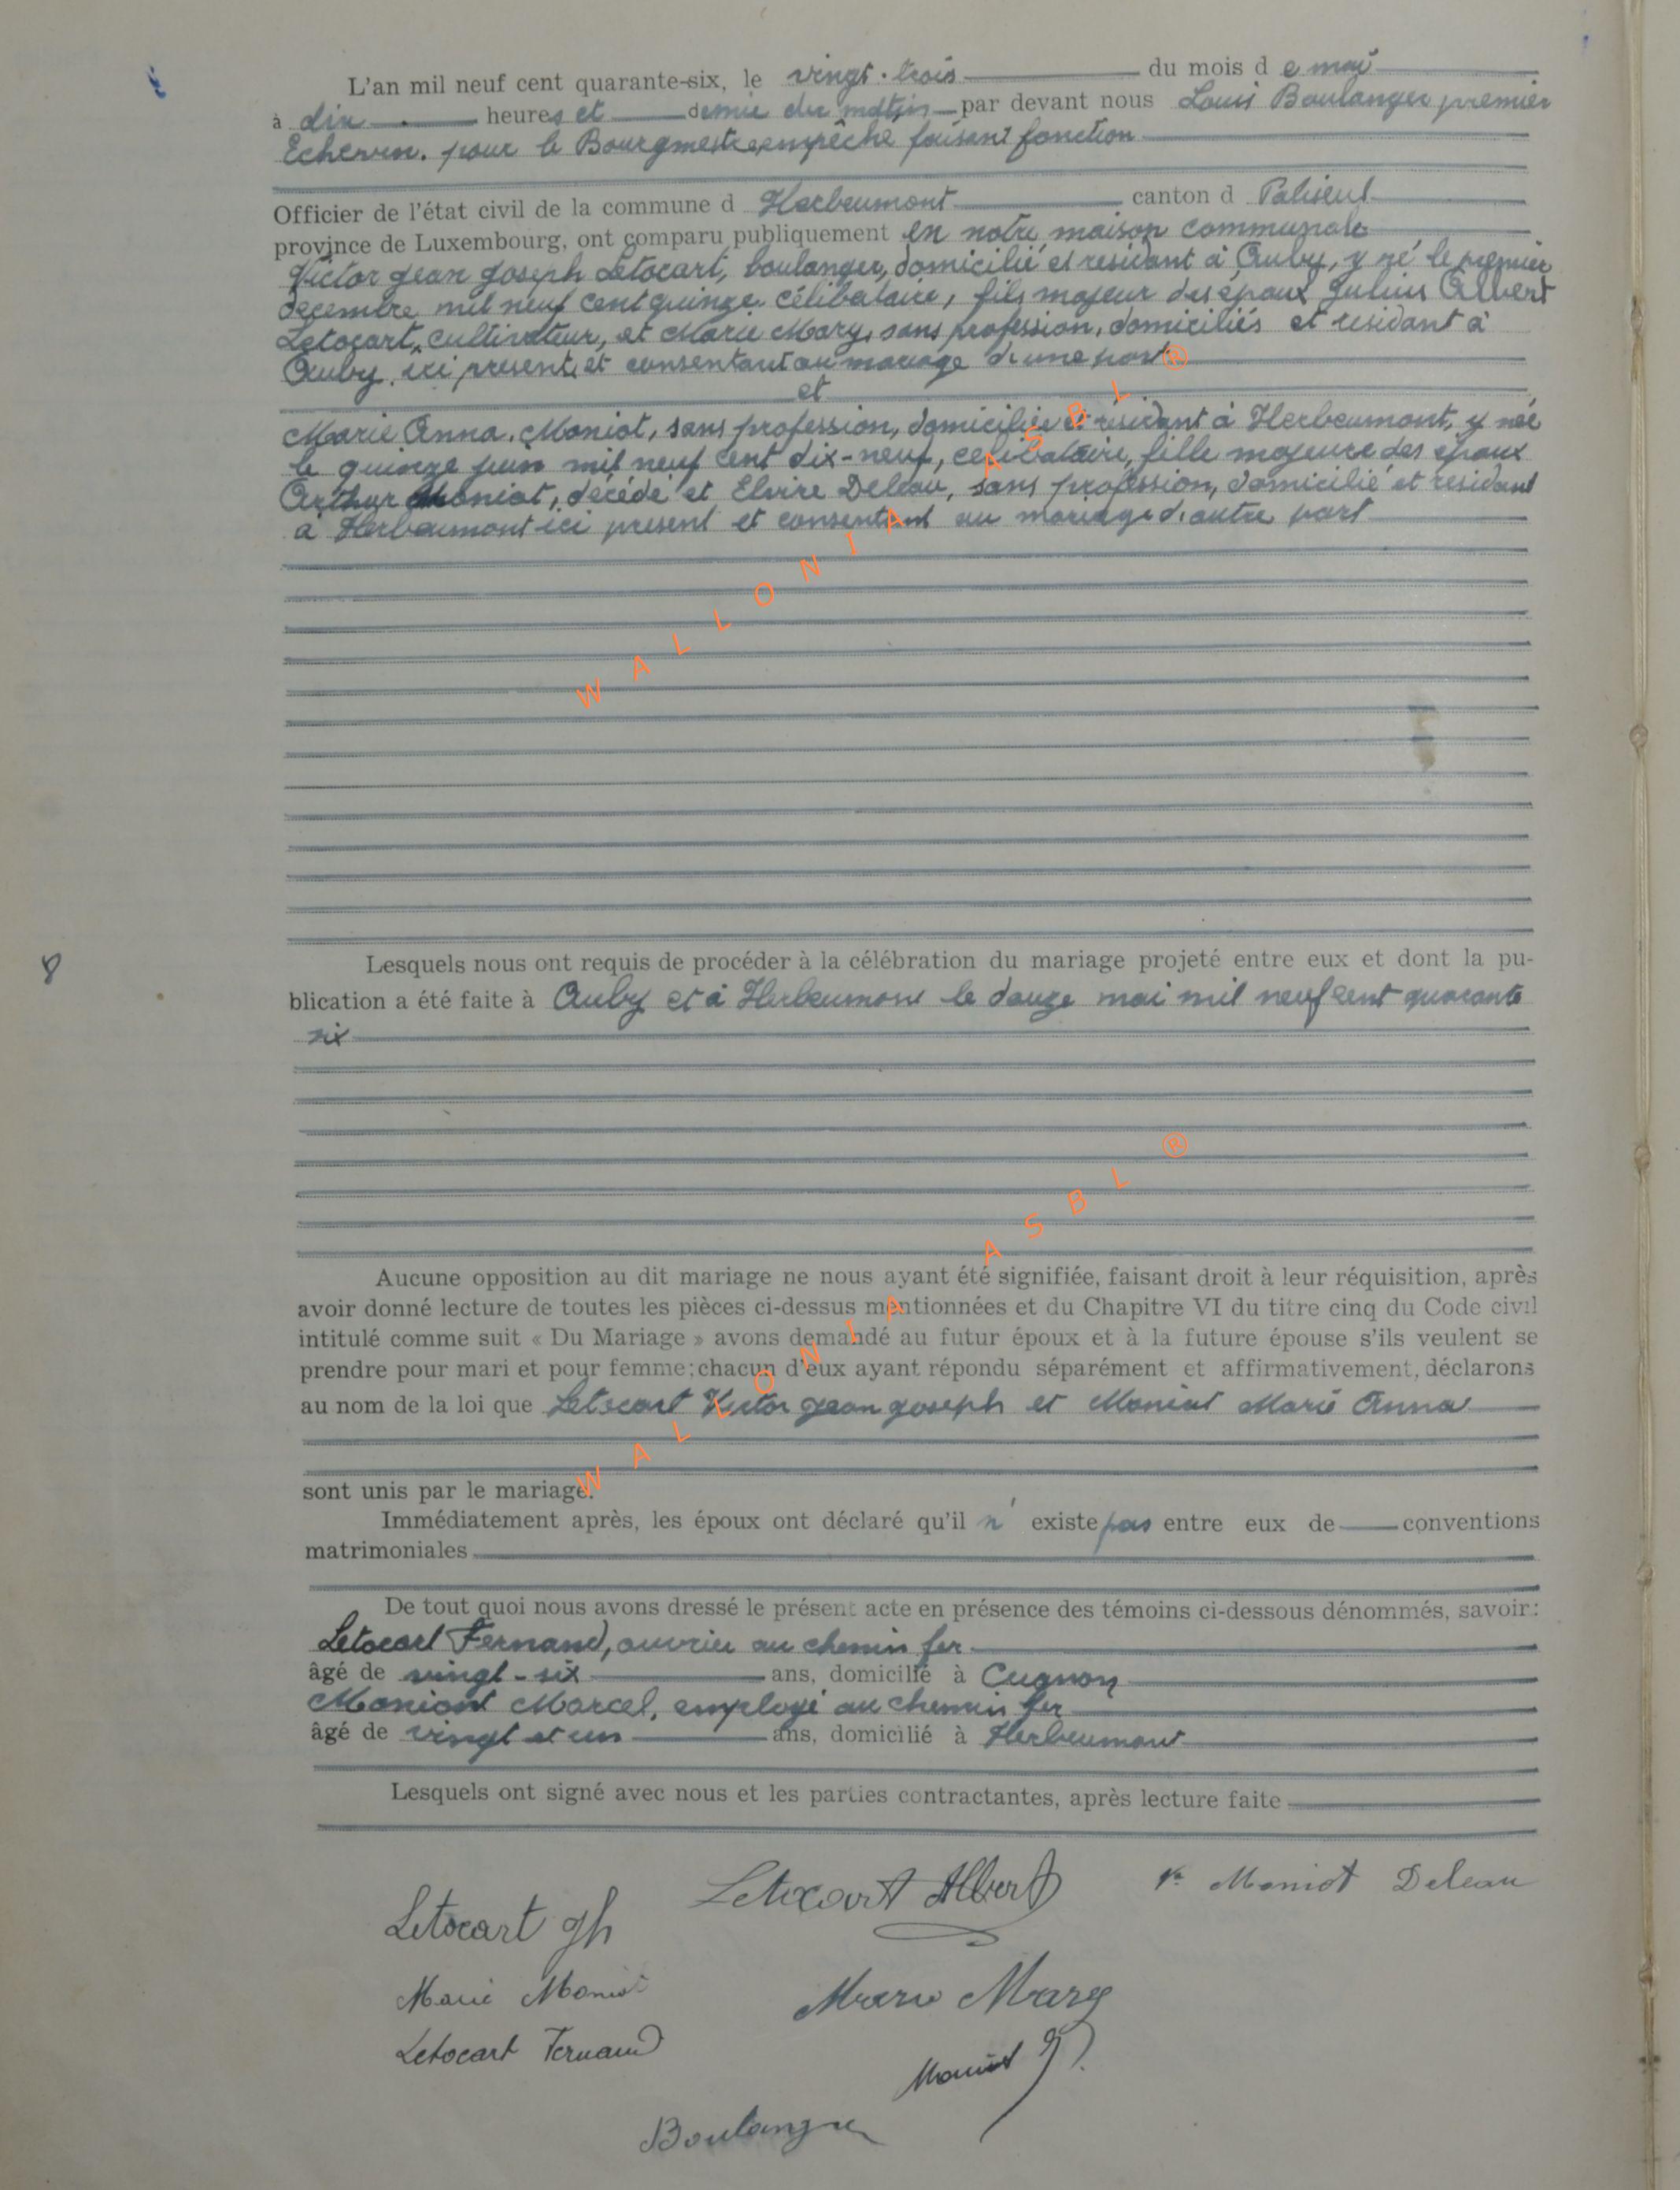 L'an mil neuf cent quarante-six, le vingt-trois du mois d e mai
à dix heures et demie du matin par devant nous Louis Boulanger premier
Echevin. pour le Bourgmestre empêche faisant fonction
Officier de l'état civil de la commune d Herbeumont canton d Paliseul
province de Luxembourg, ont comparu publiquement en notre maison communale
Victor Jean Joseph Letocart, boulanger, domicilié et residant à Auby, y né le premier
decembre mil neuf cent quinze. célibataire, fils majeur des époux Julien Albert
Letocart, cultivateur, et Marie Mary, sans profession, domiciliés et residant à
Auby, ici present, et consentant au mariage d'une part
et
Marie Anna Moniot, sans profession, domiciliée et résidant à Herbeumont, y née
le quinze juin mil neuf cent dix-neuf, célibataire, fille majeure des époux
Arthur Moniot, décédé et Elvire Deleau, sans profession, domicilié et residant
à Herbeumont ici present et consentant au mariage d'autre part
8
Lesquels nous ont requis de procéder à la célébration du mariage projeté entre eux et dont la pu-
blication a été faite à Auby et à Herbeumont le douze mai mil neuf cent quarante
six
Aucune opposition au dit mariage ne nous ayant été signifiée, faisant droit à leur réquisition, après
avoir donné lecture de toutes les pièces ci-dessus mentionnées et du Chapitre VI du titre cinq du Code civil
intitulé comme suit « Du Mariage » avons demandé au futur époux et à la future épouse s'ils veulent se
prendre pour mari et pour femme; chacun d'eux ayant répondu séparément et affirmativement, déclarons
au nom de la loi que Letocart Victor Jean Joseph et Moniot Marie Anna
sont unis par le mariage.
Immédiatement après, les époux ont déclaré qu'il n' existe pas entre eux de conventions
matrimoniales
De tout quoi nous avons dressé le présent acte en présence des témoins ci-dessous dénommés, savoir:
Letocart Fernand, ouvrier au chemin fer
âgé de vingt-six ans, domicilié à Cugnon
Moniont Marcel, employé au chemin fer
âgé de vingt et un ans, domicilié à Herbeumont
Lesquels ont signé avec nous et les parties contractantes, après lecture faite
Letocart Albert Ve Moniot Deleau
Letocart Jh
Marie Moniot Marie Mary
Letocart Fernand
Moniot
Boulanger
WALLONIA ASBL ®
WALLONIA ASBL ®